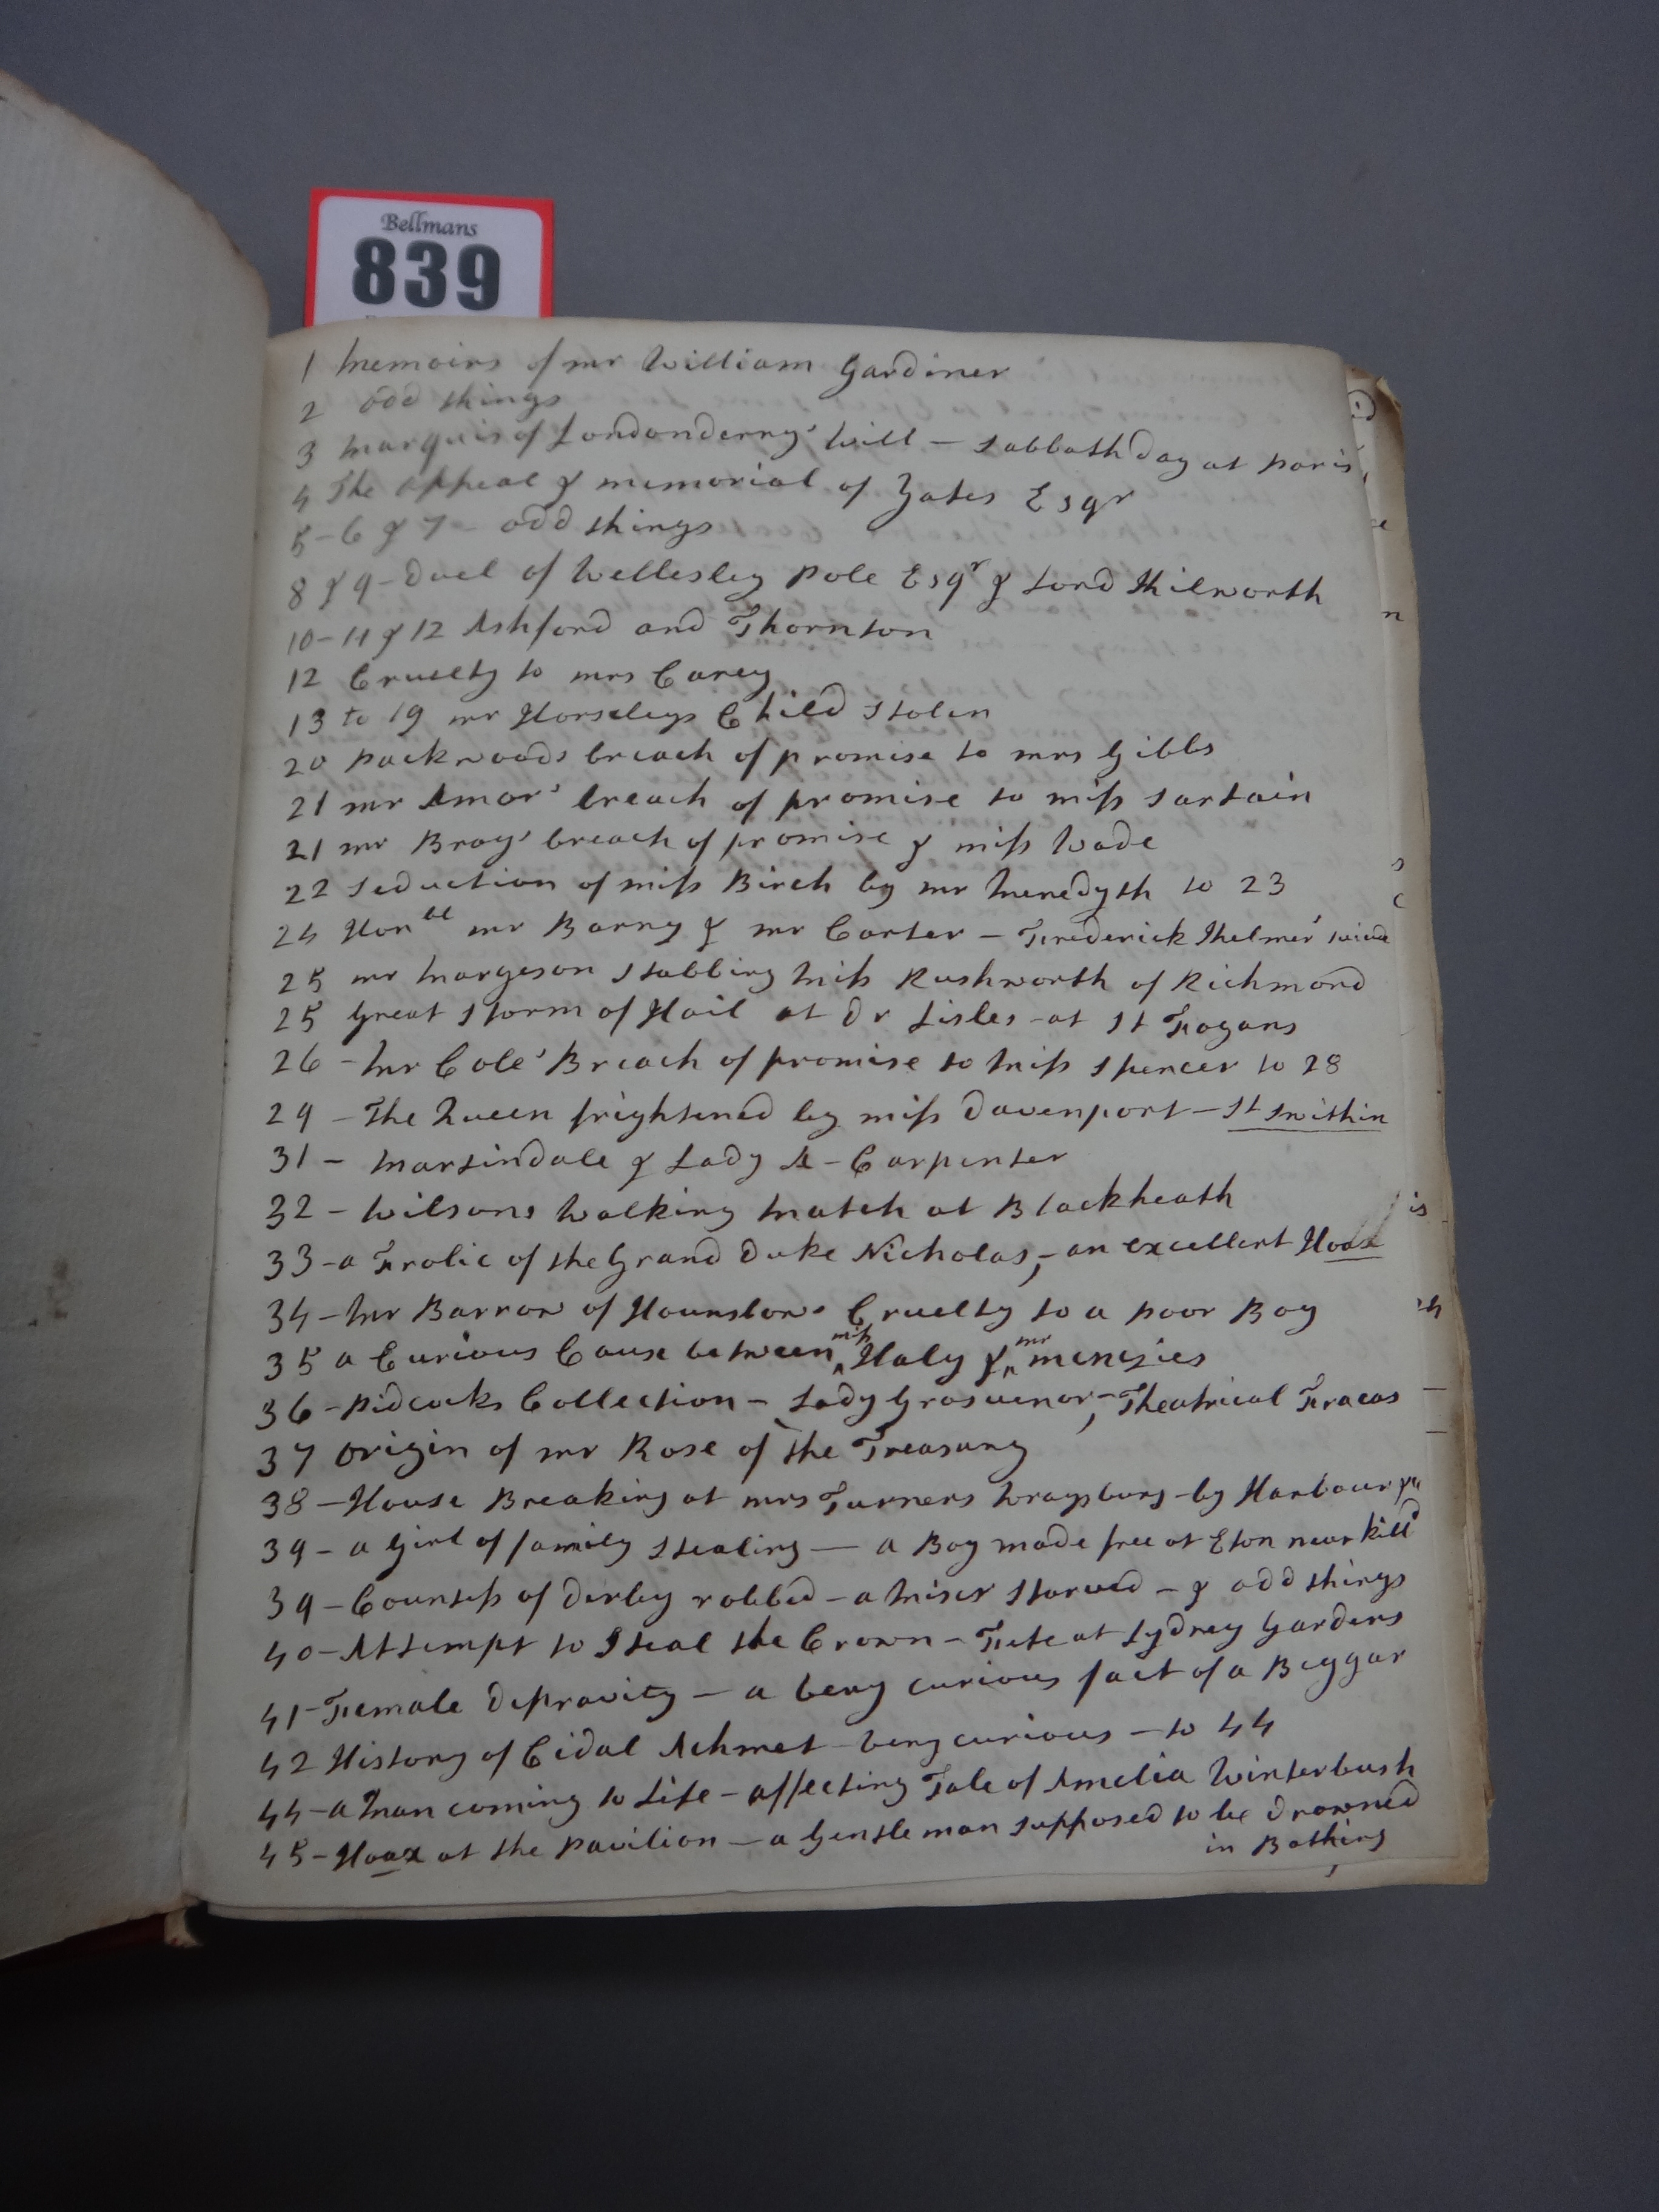 Bellmans
839
1 Memoirs of mr William Gardiner
2 odd things
3 Marquis of Londonderry' Will – Sabbath day at Paris
4 The appeal & memorial of Yates Esqr
5–6 & 7 – odd things
8 & 9 – Duel of Wellesley Pole Esqr & Lord Kilworth
10–11 & 12 Ashford and Thornton
12 Cruelty to mrs Carey
13 to 19 mr Horseleys Child Stolen
20 Packwoods breach of promise to mrs Gibbs
21 mr Amor' breach of promise to miss Sartain
21 mr Bray' breach of promise & miss Wade
22 Seduction of miss Birch by mr Meredyth to 23
24 Honble mr Barry & mr Carter – Frederick
25 mr Margeson Stabbing Miss Rushworth of Richmond
25 Great Storm of Hail at Dr Lisles – at St Fagans
26 – Mr Cole' Breach of promise to Miss Spencer to 28
29 – The Queen frightened by miss Davenport – St Swithin
31 – Martindale & Lady A – Carpenter
32 – Wilsons Walking Match at Blackheath
33 – a Frolic of the Grand Duke Nicholas, – an excellent Hoax
34 – Mr Barrow of Hounslow' Cruelty to a poor Boy
35 a Curious Cause between miss Haly & mr menezies
36 – Pidcocks Collection – Lady Grosvenor, – Theatrical Fracas
37 Origin of mr Rose of the Treasury
38 – House Breaking at mrs Turners Wraysbury – by Harbour
39 – a Girl of family Stealing — a Boy made free at Eton near killd
39 – Countess of Derby robbed – a Miser Starved – & odd things
40 – Attempt to Steal the Crown – Fete at Sydney Gardens
41 – Female Depravity – a very curious fact of a Beggar
42 History of Cidal Achmet very curious – to 44
44 – a Man coming to Life – affecting Tale of Amelia Winterbush
45 – Hoax at the Pavilion – a Gentleman supposed to be Drowned
in Bathing